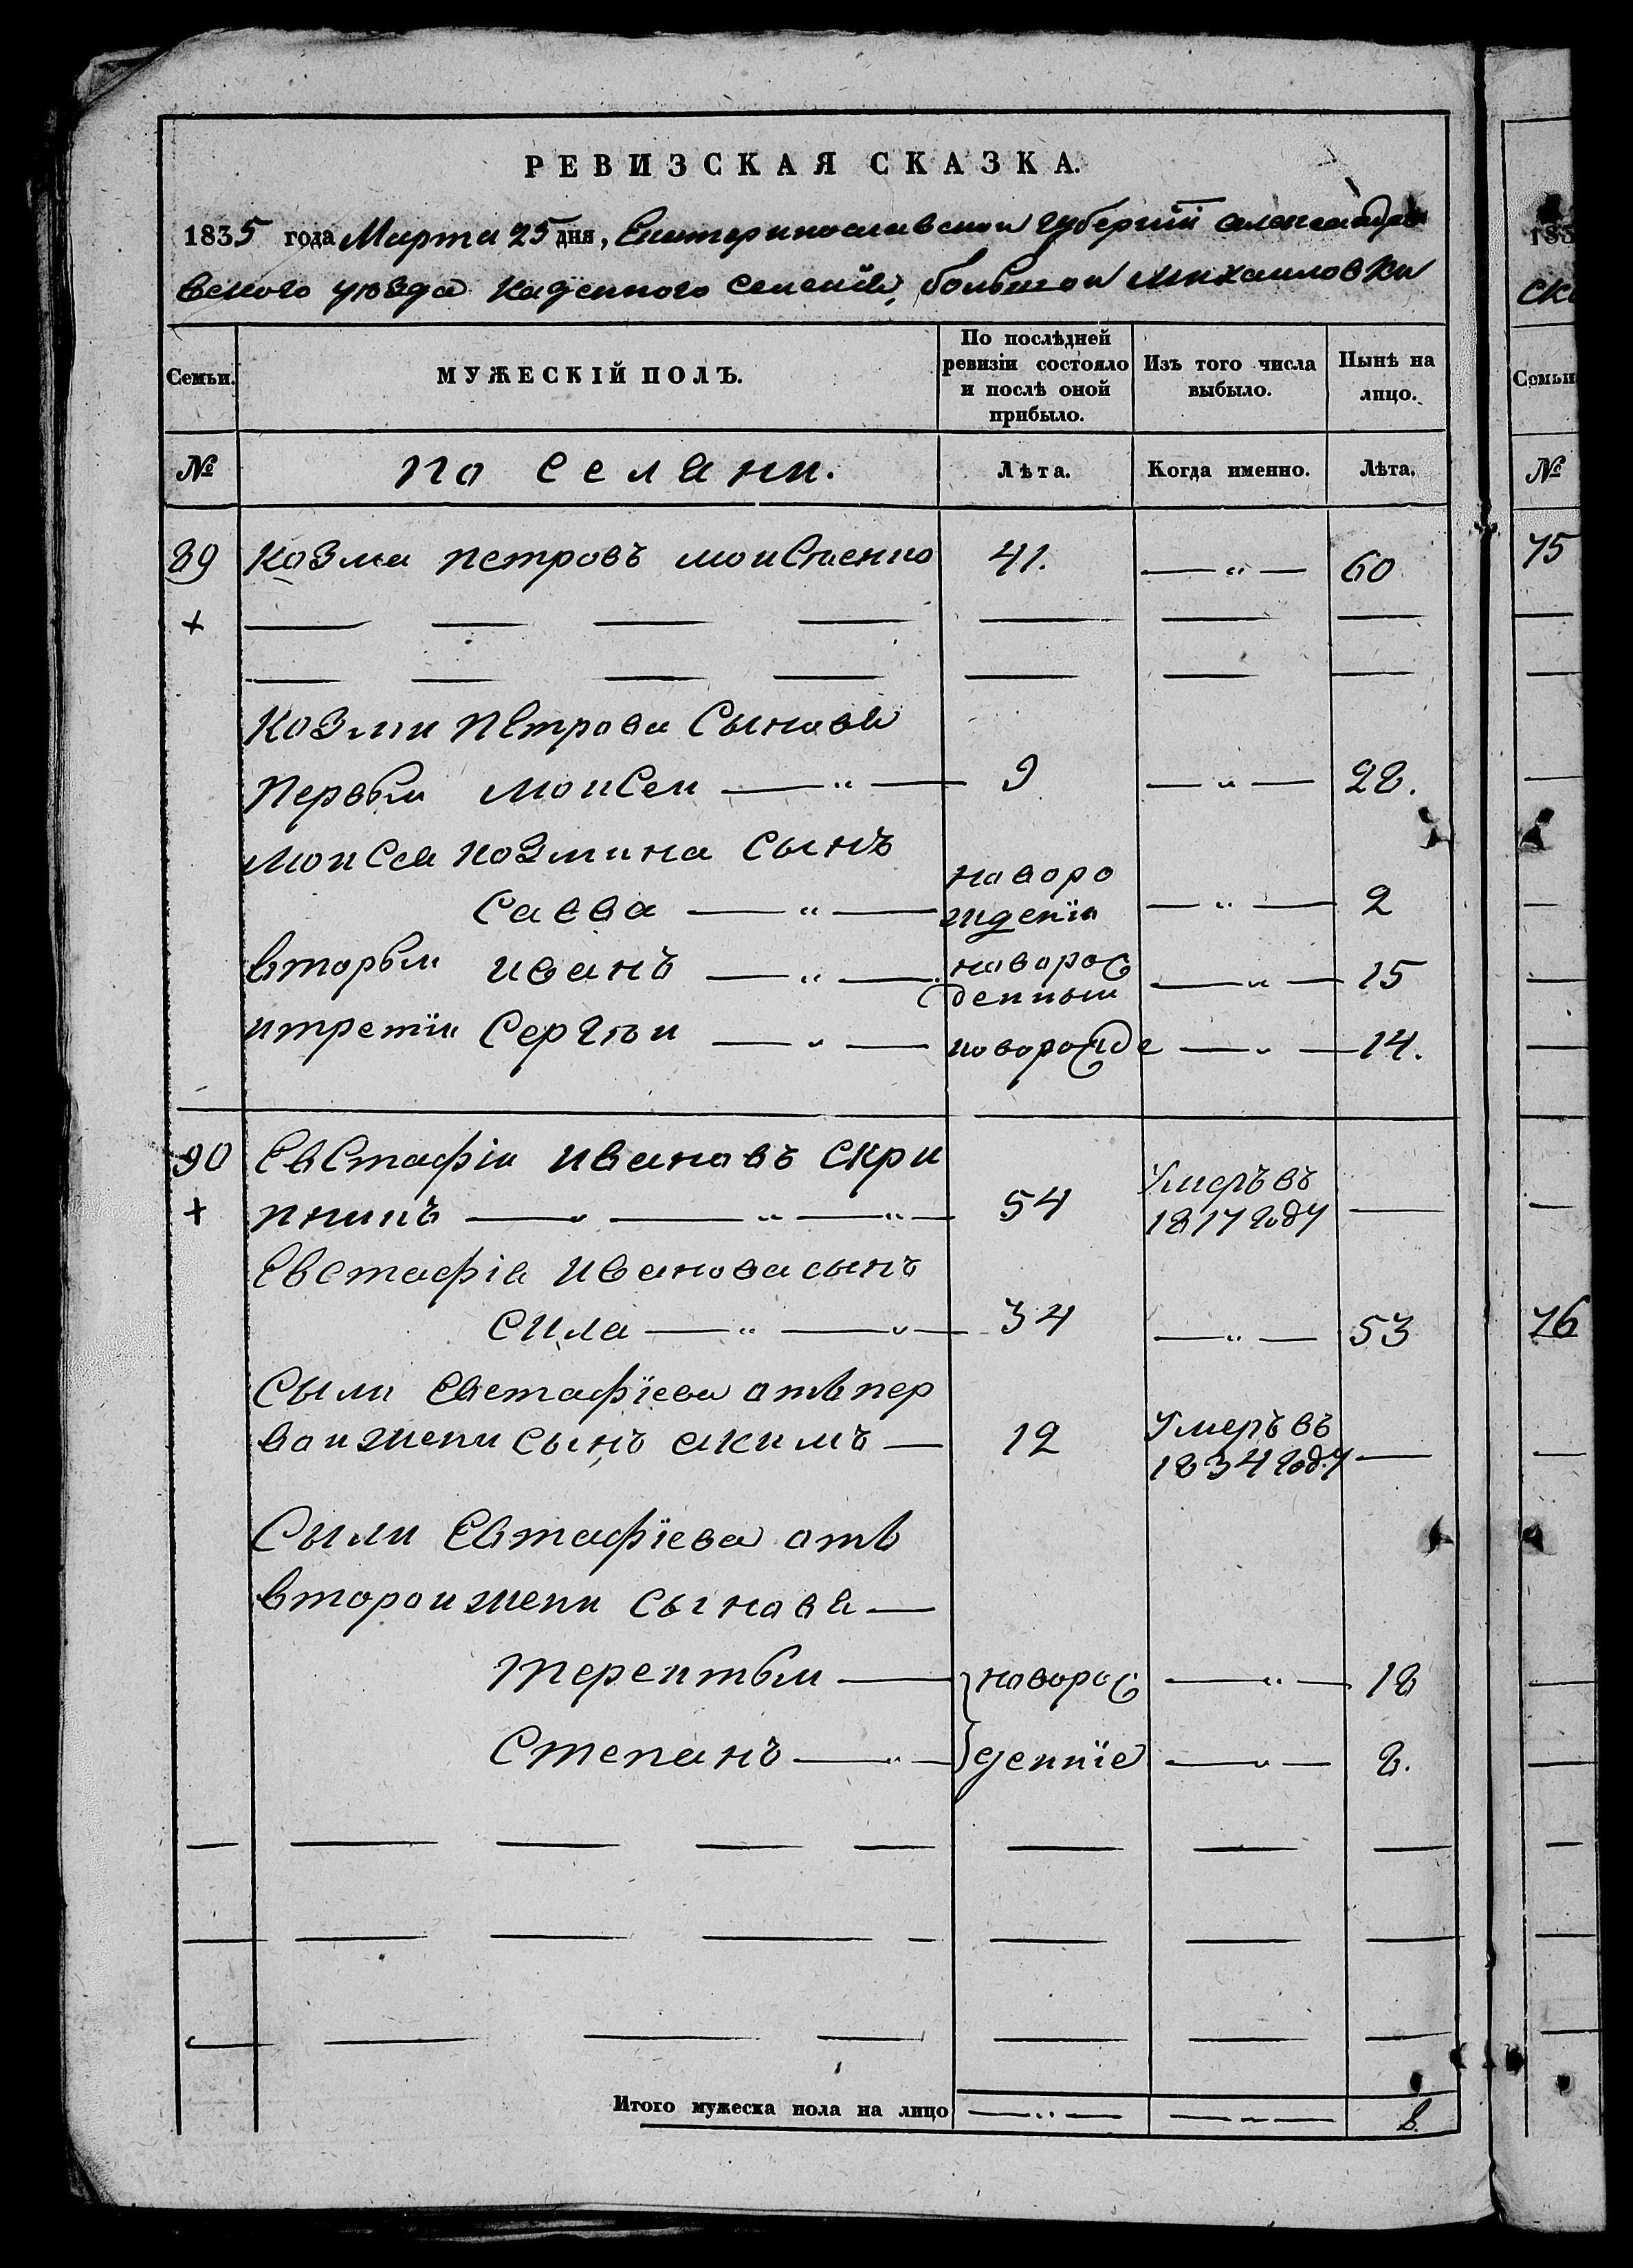 РЕВИЗСКАЯ СКАЗКА.
1835 года Марта 25 дня, Екатеринославской губернїи александро
вского уѣзда Казенного селенїя, большой михаиловки
Семьи.
МУЖЕСКІЙ ПОЛЪ.
По послѣдней ревизіи состояло и послѣ оной прибыло.
Изъ того числа выбыло.
Нынѣ на лицо.
№ поселяни. Лѣта. Когда именно. Лѣта.
89 Козма петровъ моисиенко 41. — „ — 60
+
Козми петрова Сыновя
первый моисей — „ — 9 — „ — 28.
моисея козмина сынъ
савва — „ — новоро
жденїи — „ — 2
вторый иванъ — „ — новорож
денный — „ — 15
итретїи Сергѣи — „ — новорожде — „ — 14.
90 Евстафіи ивановъ скри
+ пникъ — „ — „ — „ — 54 Умеръ въ
1817 году —
Евстафія иванова сынъ
сила — „ — „ — 34 — „ — 53
Сыли Евстафїева отъ пер
вои жени сынъ акимъ — 12 Умеръ въ
1834 году —
Сыли Евтафїева отъ
второи жени сыновя —
терентый — новорож — „ — 18
Степанъ — „ — денніе — „ — 8.
Итого мужеска пола на лицо — „ — — „ — 8.
183
ск
Семьи
№
75
76